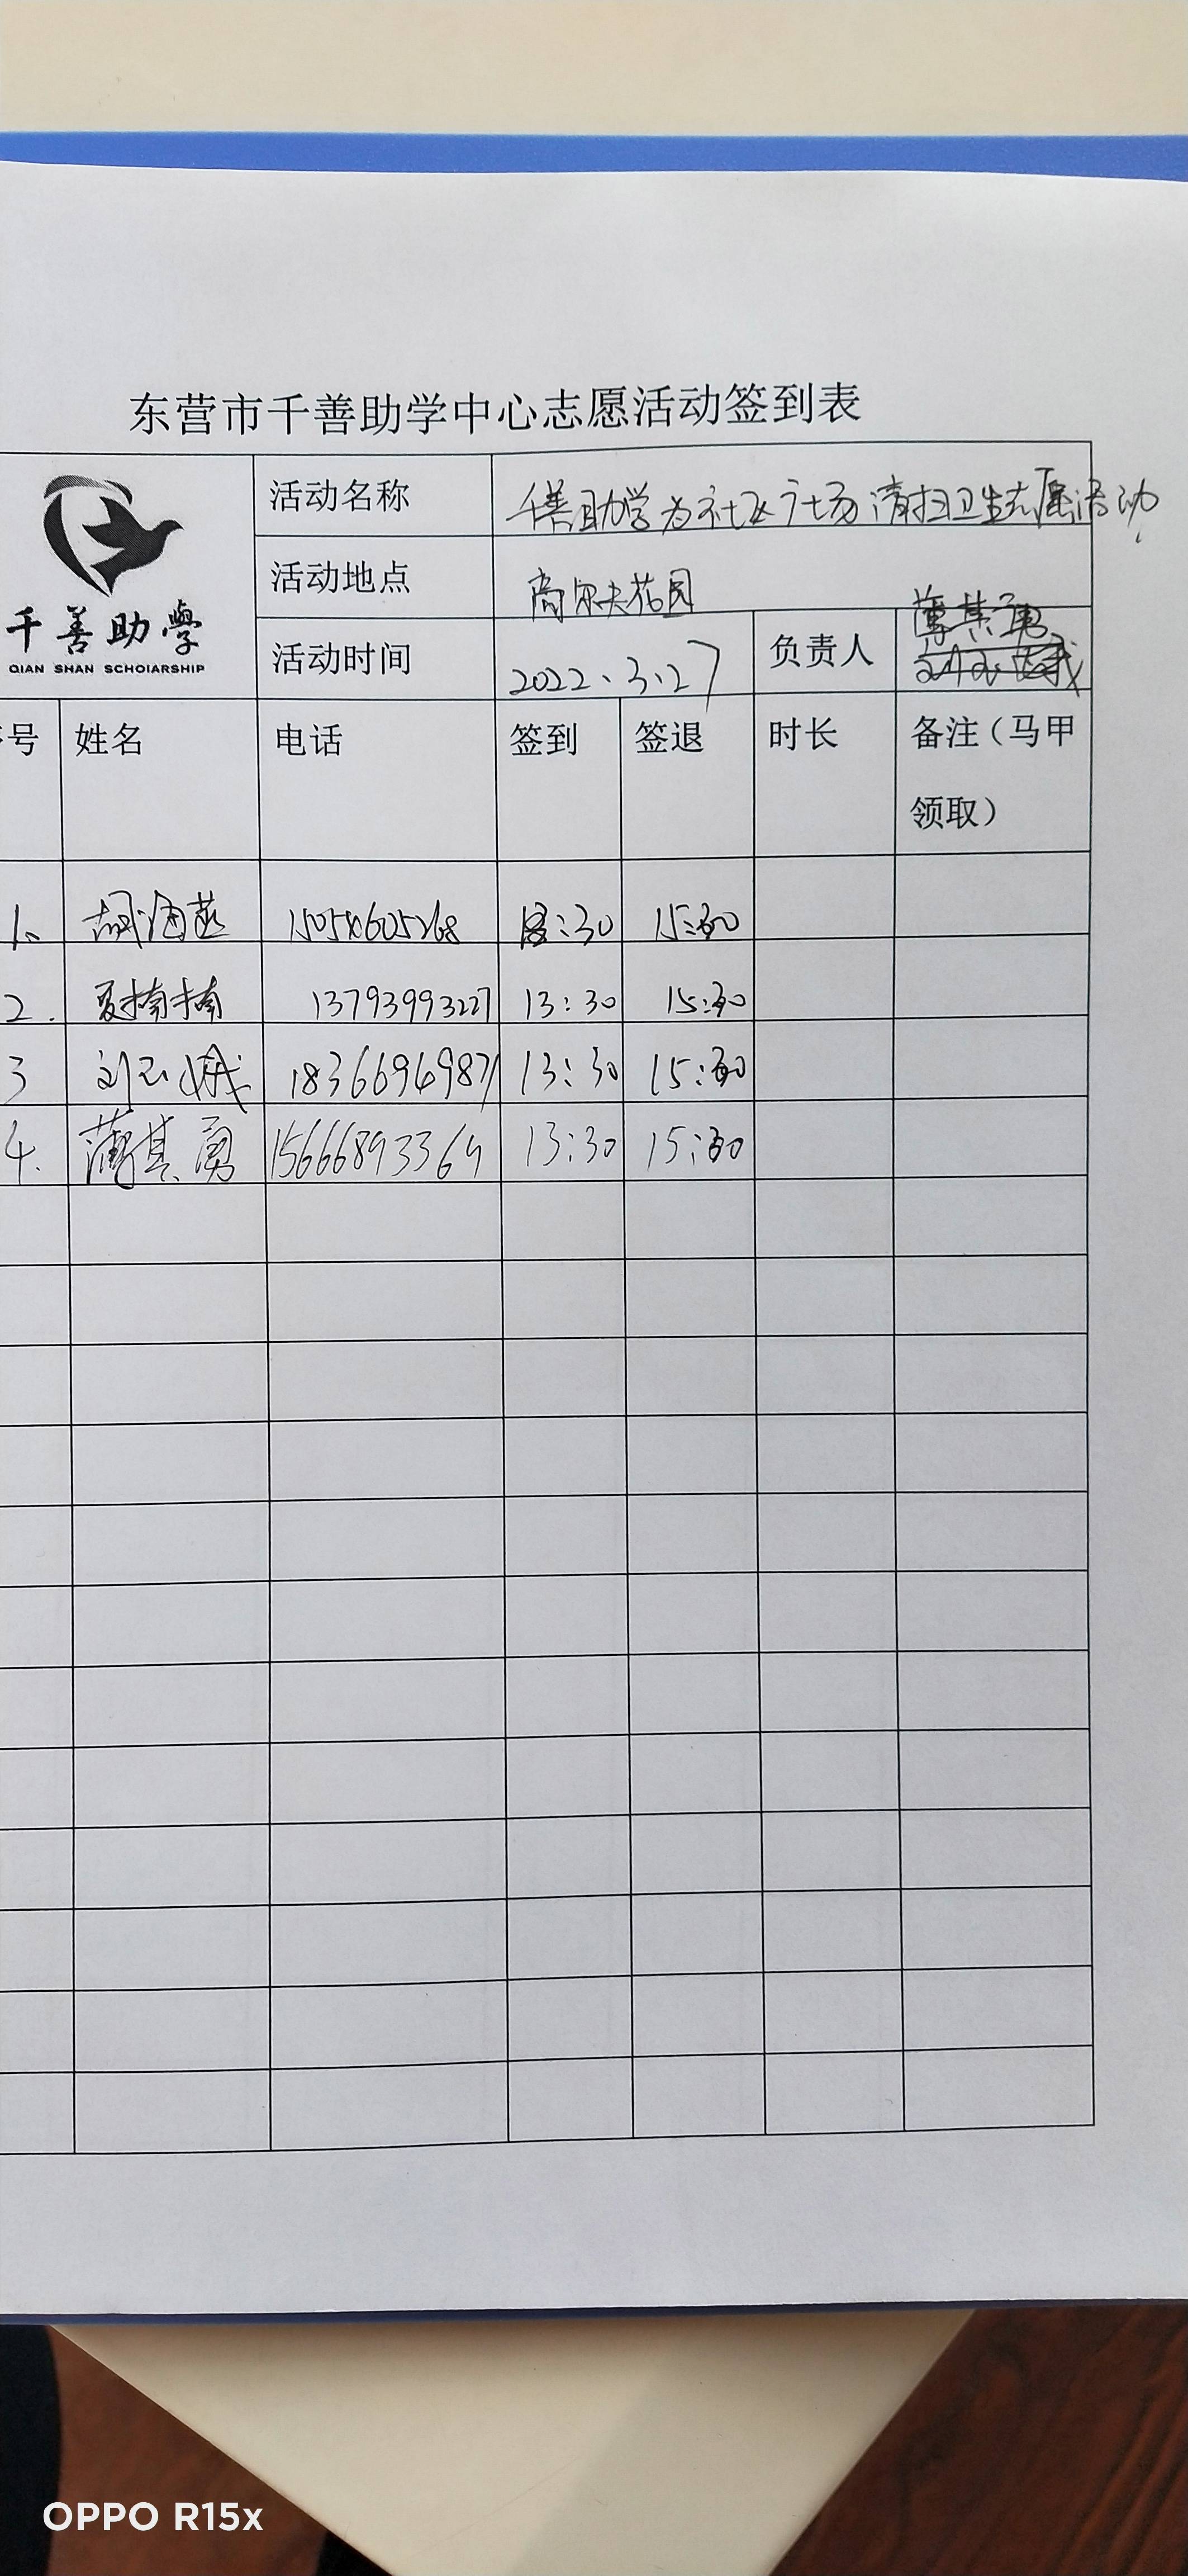 东营市千善助学中心志愿活动签到表
千善助學
QIAN SHAN SCHOlARSHIP
活动名称 千善助学为社区广场清扫卫生志愿活动
活动地点 高尔夫花园
活动时间 2022、3、27 负责人 薄其勇
号 姓名 电话 签到 签退 时长 备注（马甲
领取）
1、 胡海燕 13:30 15:30
2. 夏楠楠 13793993227 13:30 15:30
3 刘玉娥 18366949871 13:30 15:30
4. 薄其勇 15666893364 13:30 15:30
OPPO R15x